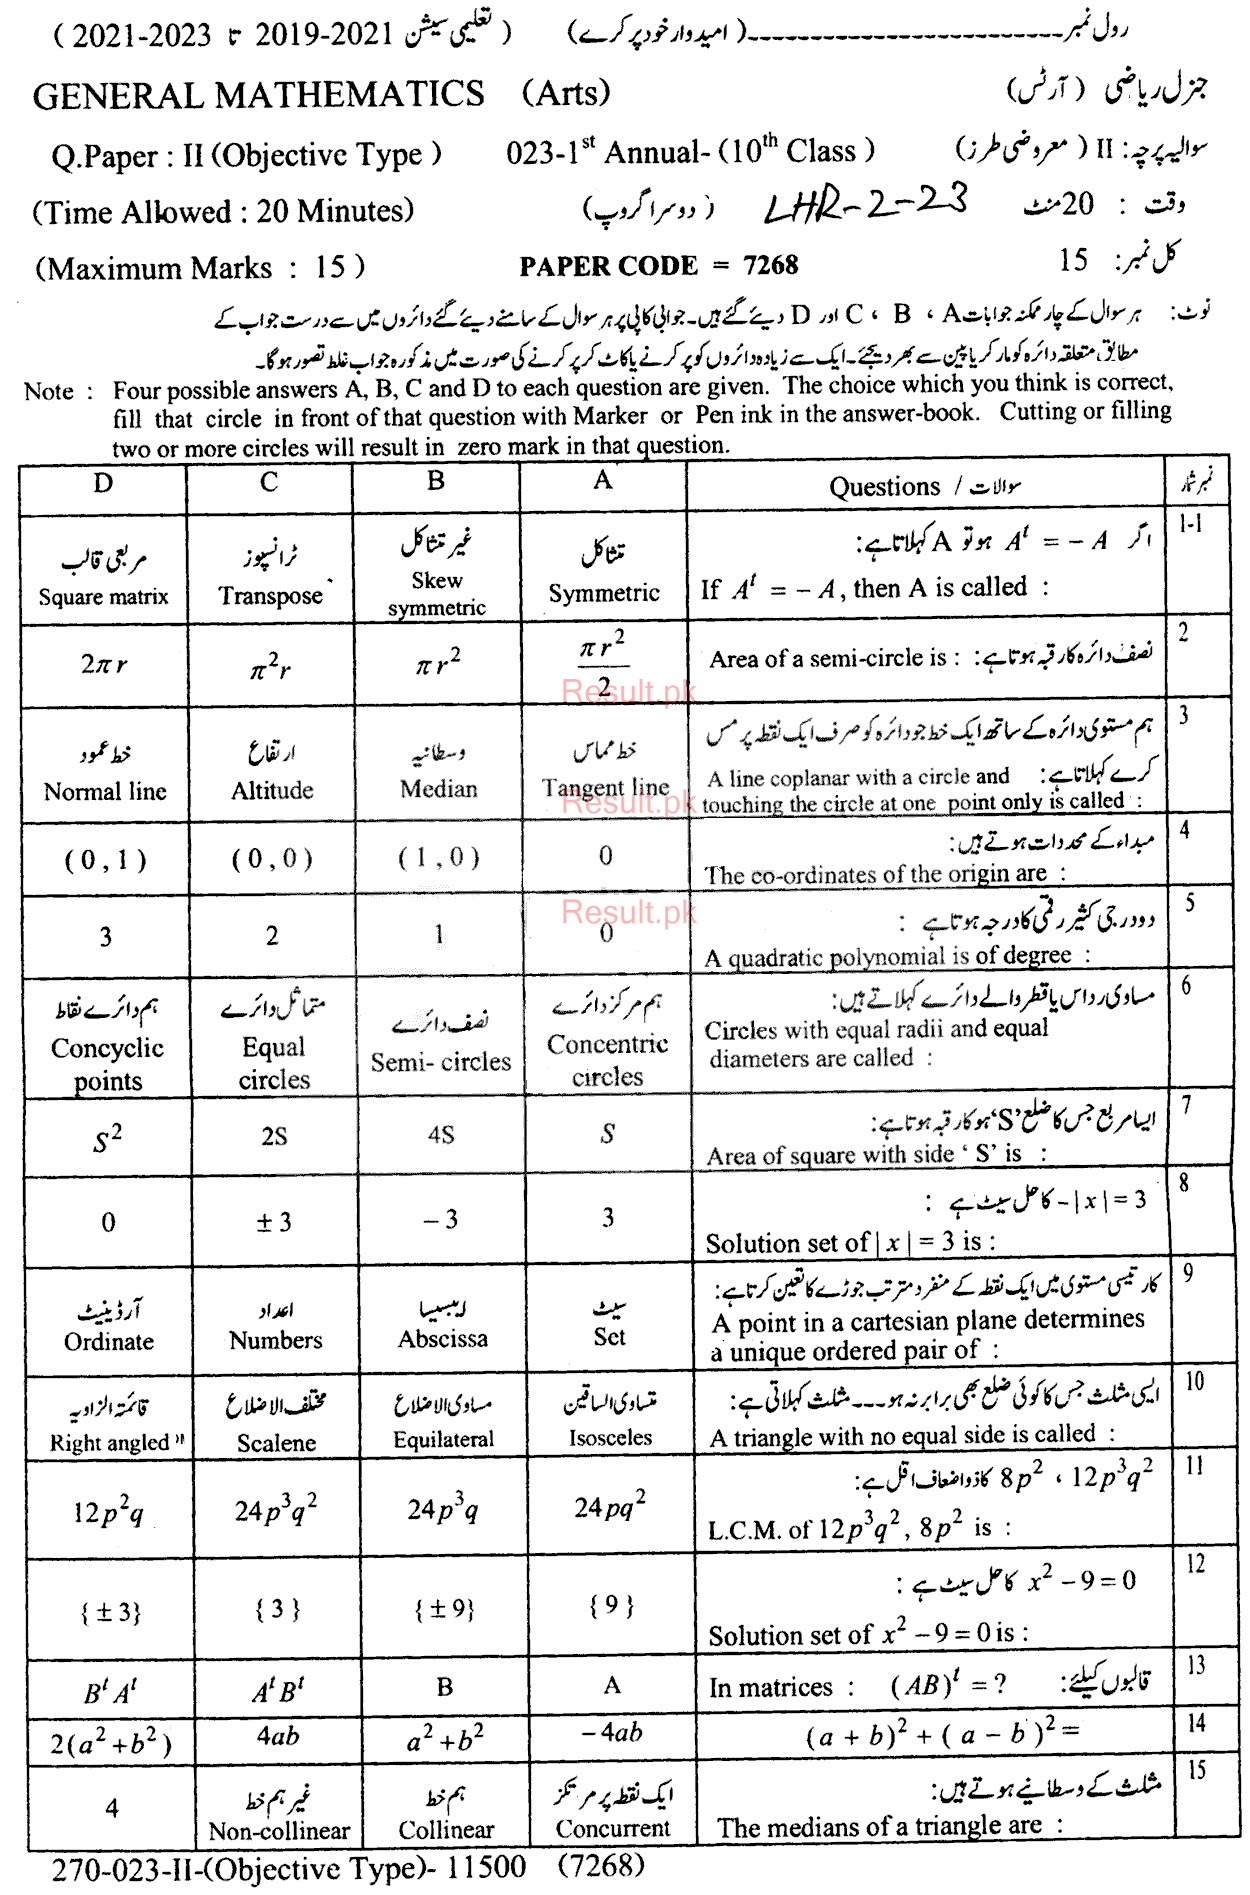 رول نمبر ------------------------ ( امیدوار خود پر کرے ) ( تعلیمی سیشن 2021-2019 تا 2023-2021 )
GENERAL MATHEMATICS (Arts) جنرل ریاضی ( آرٹس )
Q.Paper : II (Objective Type ) 023-1st Annual- (10th Class ) سوالیہ پرچہ : II ( معروضی طرز )
(Time Allowed : 20 Minutes) ( دوسرا گروپ ) LHR-2-23 وقت : 20 منٹ
(Maximum Marks : 15 ) PAPER CODE = 7268 کل نمبر : 15
نوٹ : ہر سوال کے چار ممکنہ جوابات A ، B ، C اور D دیئے گئے ہیں۔ جوابی کاپی پر ہر سوال کے سامنے دیئے گئے دائروں میں سے درست جواب کے
مطابق متعلقہ دائرہ کو مارکر یا پین سے بھر دیجئے۔ ایک سے زیادہ دائروں کو پر کرنے یا کاٹ کر پر کرنے کی صورت میں مذکورہ جواب غلط تصور ہو گا۔
Note : Four possible answers A, B, C and D to each question are given. The choice which you think is correct,
fill that circle in front of that question with Marker or Pen ink in the answer-book. Cutting or filling
two or more circles will result in zero mark in that question.
D C B A Questions / سوالات نمبر شمار
مربعی قالب ٹرانسپوز غیر تشاکل تشاکل اگر Aᵗ = – A ہو تو A کہلاتا ہے: 1-1
Square matrix Transpose Skew symmetric Symmetric If Aᵗ = – A, then A is called :
2πr π²r πr² πr²/2 Area of a semi-circle is : نصف دائرہ کا رقبہ ہوتا ہے: 2
خط عمود ارتفاع وسطانیہ خط مماس ہم مستوی دائرہ کے ساتھ ایک خط جو دائرہ کو صرف ایک نقطہ پر مس 3
کرے کہلاتا ہے:
Normal line Altitude Median Tangent line A line coplanar with a circle and
touching the circle at one point only is called :
مبداء کے محددات ہوتے ہیں: 4
(0,1) (0,0) (1,0) 0 The co-ordinates of the origin are :
دو درجی کثیر رقمی کا درجہ ہوتا ہے : 5
3 2 1 0 A quadratic polynomial is of degree :
ہم دائرے نقاط متماثل دائرے نصف دائرے ہم مرکز دائرے مساوی رداس یا قطر والے دائرے کہلاتے ہیں: 6
Concyclic points Equal circles Semi- circles Concentric circles Circles with equal radii and equal
diameters are called :
ایسا مربع جس کا ضلع ‘S’ ہو کا رقبہ ہوتا ہے: 7
S² 2S 4S S Area of square with side ‘ S’ is :
–|x| = 3 کا حل سیٹ ہے : 8
0 ±3 –3 3 Solution set of |x| = 3 is :
آرڈینیٹ اعداد ایبسیسا سیٹ کارتیسی مستوی میں ایک نقطہ کے منفرد مترتب جوڑے کا تعین کرتا ہے: 9
Ordinate Numbers Abscissa Set A point in a cartesian plane determines
a unique ordered pair of :
قائمۃ الزاویہ مختلف الاضلاع مساوی الاضلاع متساوی الساقین ایسی مثلث جس کا کوئی ضلع بھی برابر نہ ہو --- مثلث کہلاتی ہے: 10
Right angled Scalene Equilateral Isosceles A triangle with no equal side is called :
12p³q² ، 8p² کا ذواضعاف اقل ہے: 11
12p²q 24p³q² 24p³q 24pq² L.C.M. of 12p³q², 8p² is :
x² – 9 = 0 کا حل سیٹ ہے : 12
{±3} {3} {±9} {9} Solution set of x² – 9 = 0 is :
BᵗAᵗ AᵗBᵗ B A In matrices : (AB)ᵗ = ? قالبوں کیلئے: 13
2(a²+b²) 4ab a²+b² –4ab (a + b)² + ( a – b )² = 14
غیر ہم خط ہم خط ایک نقطہ پر مرتکز مثلث کے وسطانیے ہوتے ہیں: 15
4 Non-collinear Collinear Concurrent The medians of a triangle are :
270-023-II-(Objective Type)- 11500 (7268)
Result.pk
Result.pk
Result.pk